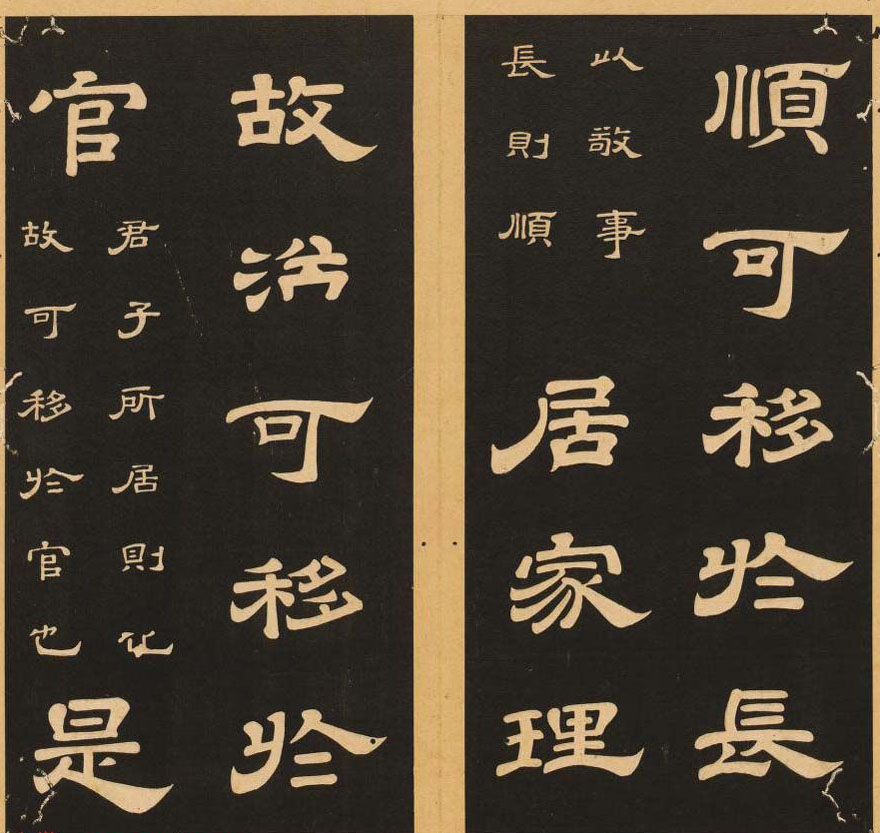 順可移於長
以敬事
長則順
居家理
故治可移於
官
君子所居則化
故可移於官也
是